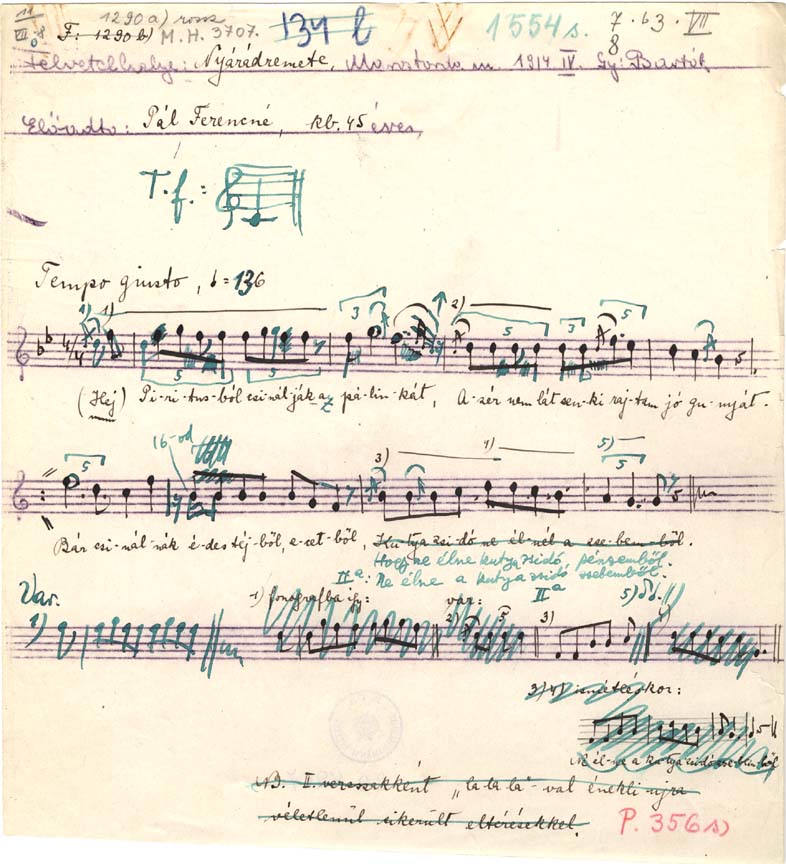 11 1290 a) rossz 134 b 1554 s. 7. 63. VII
VII. 8 F: 1290 b) M.H. 3707. 8
Felvétel helye: Nyárádremete, Marostorda m. 1914 IV. Gy: Bartók
Előadta: Pál Ferencné, kb. 45 éves,
T. f.:
Tempo giusto, = 136
1) 1) 3 2) 5 3 5
4/4
5 5
(Hej) Pi-ri-tus-ból csi-nál-ják az pá-lin-kát, A-zér nem lát sen-ki raj-tam jó gu-nyát.
16-od
5 3) 4) 5) 5
Bár csi-nál-nák é-des tej-ből, e-cet-ből, Ku-tya zsi-dó ne él-nél a zse-bem-ből.
Hogy ne élne kutya zsidó pénzemből.
IIª: Ne élne a kutya zsidó zsebemből.
Var. 1) fonográfba így: var: IIª 5)
1) 2) 3 3) 4)
3) 4) ismétléskor:
Ne él-ne a ku-tya zsidó zse-bem-ből
NB. II. versszakként „la la la"-val énekli újra
véletlenül sikerült eltérésekkel. P. 356 s)